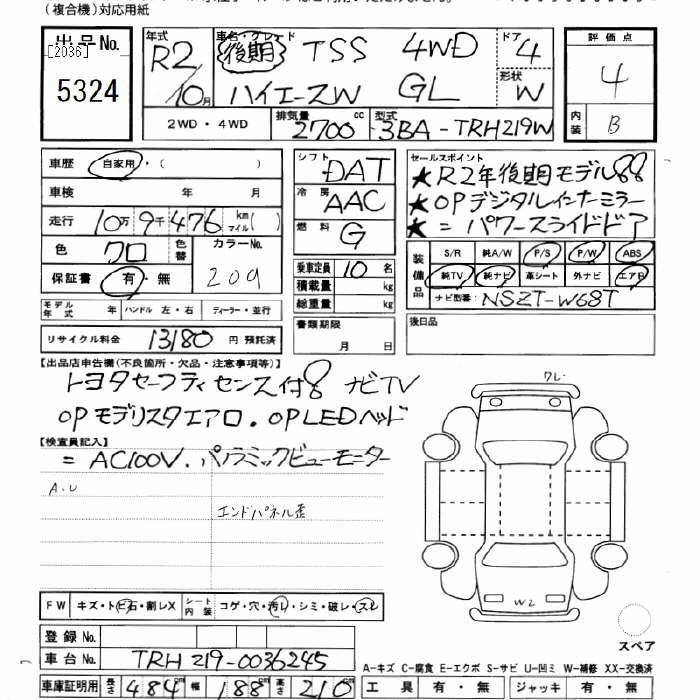 (複合機)対応用紙
出品No.
[2036]
5324
年式 R2 10月
車名・グレード 後期 TSS 4WD
ハイエースW GL
ドア 4
形状 W
評価点 4
内装 B
2WD・4WD
排気量 2700 cc
型式 3BA-TRH219W
車歴 自家用・( )
車検 年 月
走行 10万9千476 km マイル( )
色 クロ 色替 カラーNo. 209
保証書 有・無
モデル年式 年 ハンドル 左・右 ディーラー・並行
リサイクル料金 13180 円 預託済
シフト DAT
冷房 AAC
燃料 G
乗車定員 10 名
積載量 kg
総重量 kg
書類期限
月 日
セールスポイント
★R2年後期モデル
★OPデジタルインナーミラー
★=パワースライドドア
装備品 S/R 純A/W P/S P/W ABS
純TV 純ナビ 革シート 外ナビ エアB
ナビ型番: NSZT-W68T
後日品
【出品店申告欄(不良箇所・欠品・注意事項等)】
トヨタセーフティセンス付 ナビTV
OPモデリスタエアロ.OPLEDヘッド
【検査員記入】
=AC100V.パノラミックビューモニター
A.U
エンドパネル歪
ワレ
W2
FW キズ・トビ石・割レX シート内装 コゲ・穴・汚レ・シミ・破レ・スレ
スペア
登録No.
車台No. TRH219-0036245
A-キズ C-腐食 E-エクボ S-サビ U-凹ミ W-補修 XX-交換済
車庫証明用 長さ 484 cm 幅 188 cm 高さ 210 cm
工具 有・無 ジャッキ 有・無